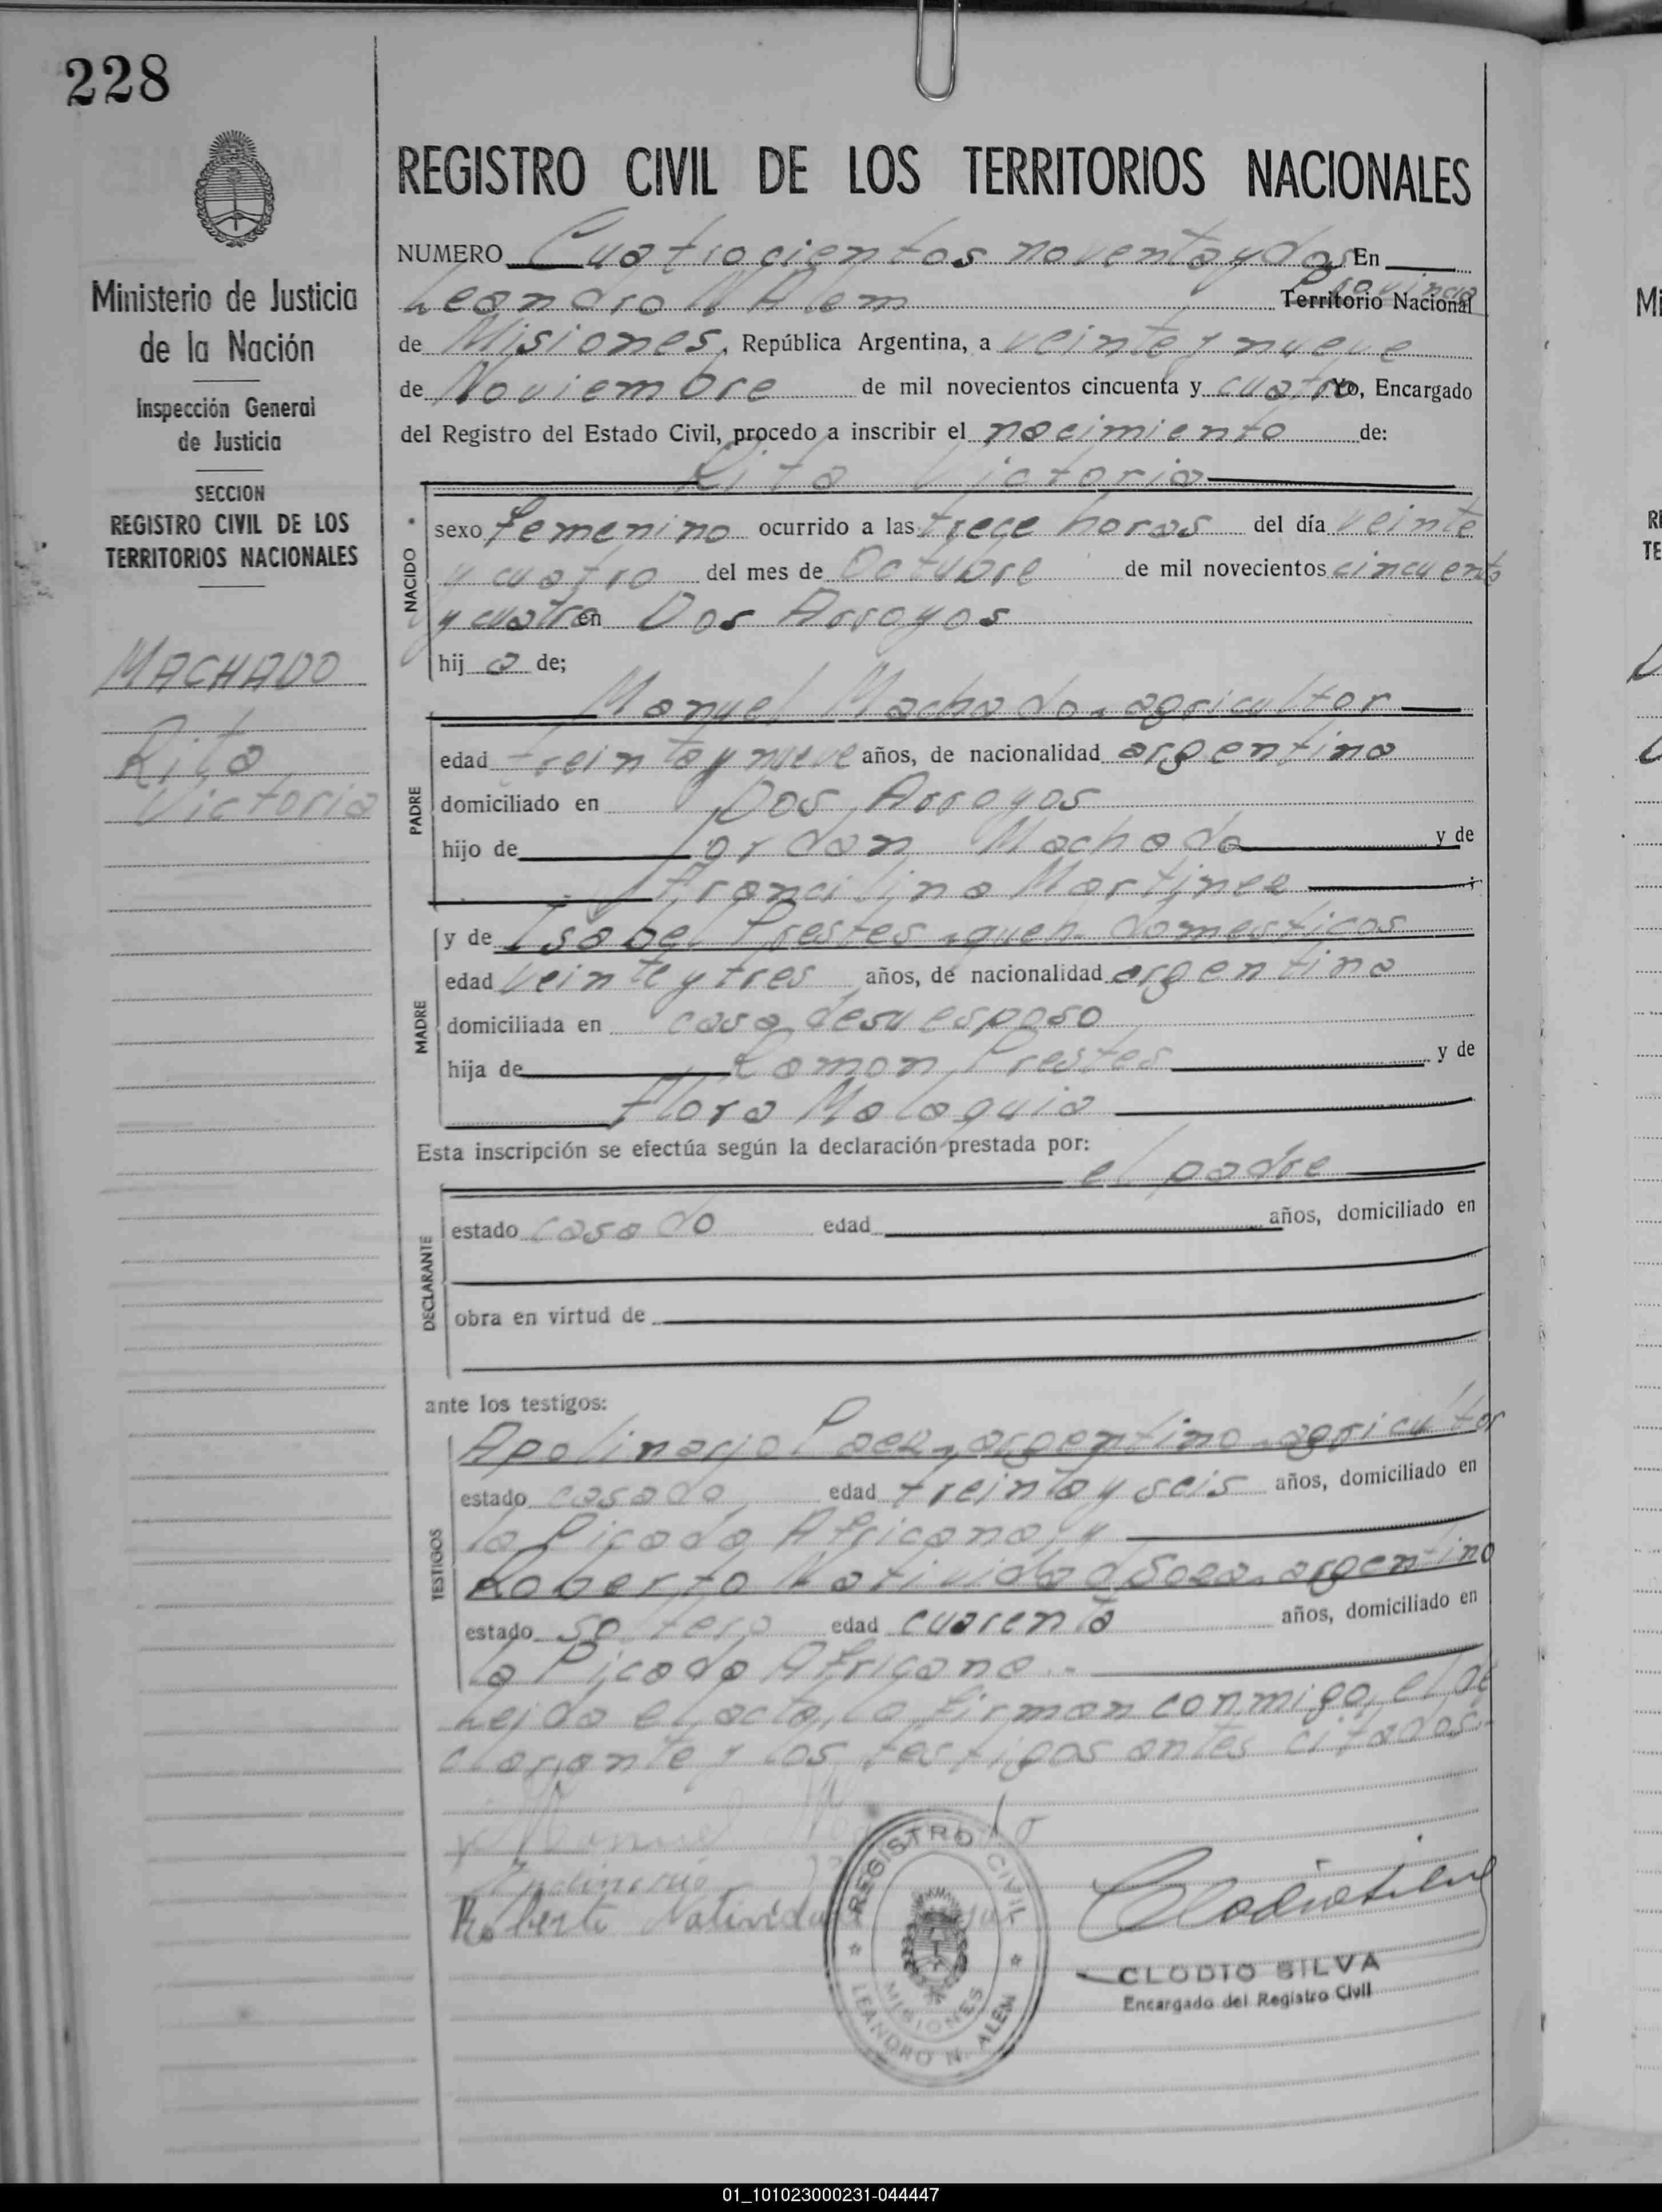 228
REGISTRO CIVIL DE LOS TERRITORIOS NACIONALES
Ministerio de Justicia
de la Nación
Inspección General
de Justicia
SECCION
REGISTRO CIVIL DE LOS
TERRITORIOS NACIONALES
MACHADO
Rita
Victoria
NUMERO Cuatrocientos noventa y dos En
provincia
Leandro N Alem Territorio Nacional
de Misiones, República Argentina, a veinte y nueve
de Noviembre de mil novecientos cincuenta y cuatro Yo, Encargado
del Registro del Estado Civil, procedo a inscribir el nacimiento de:
Rita Victoria
NACIDO
sexo femenino ocurrido a las trece horas del día veinte
y cuatro del mes de Octubre de mil novecientos cincuenta
y cuatro en Dos Arroyos
hij a de;
Manuel Machado, agricultor
PADRE
edad treinta y nueve años, de nacionalidad argentina
domiciliado en Dos Arroyos
hijo de Jordan Machado y de
Francilina Martinez ;
y de Isabel Prestes, queh. domesticos
MADRE
edad veinte y tres años, de nacionalidad argentina
domiciliada en casa de su esposo
hija de Ramon Prestes y de
Flora Malaquia
Esta inscripción se efectúa según la declaración prestada por:
el padre
DECLARANTE
estado casado edad años, domiciliado en
obra en virtud de
ante los testigos:
TESTIGOS
Apolinario Paez, argentino, agricultor
estado casado edad treinta y seis años, domiciliado en
la Picada Africana, y
Roberto Natividad Soza, argentino
estado soltero edad cuarenta años, domiciliado en
la Picada Africana.-
Leida el acta, la firman conmigo, el de
clarante y los testigos antes citados.-
Manuel
Roberto Natividad
REGISTRO CIVIL
MISIONES
LEANDRO N. ALEM
Clodio Silva
CLODIO SILVA
Encargado del Registro Civil
Mi
RE
TE
01_101023000231-044447